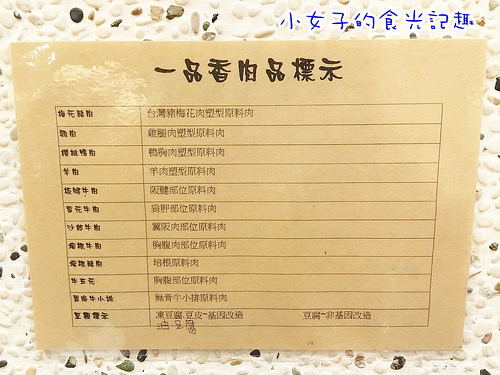 小女子的食光記趣
一品香肉品標示
梅花豬肉 台灣豬梅花肉塑型原料肉
雞肉 雞腿肉塑型原料肉
櫻桃鴨肉 鴨胸肉塑型原料肉
羊肉 羊肉塑型原料肉
板腱牛肉 阪腱部位原料肉
雪花牛肉 肩胛部位原料肉
沙朗牛肉 翼阪肉部位原料肉
胸腹肉部位原料肉
培根原料肉
牛五花 胸腹部位原料肉
無骨牛小排原料肉
豆類標示 凍豆腐.豆皮~基因改造 豆腐~非基因改造
油豆腐